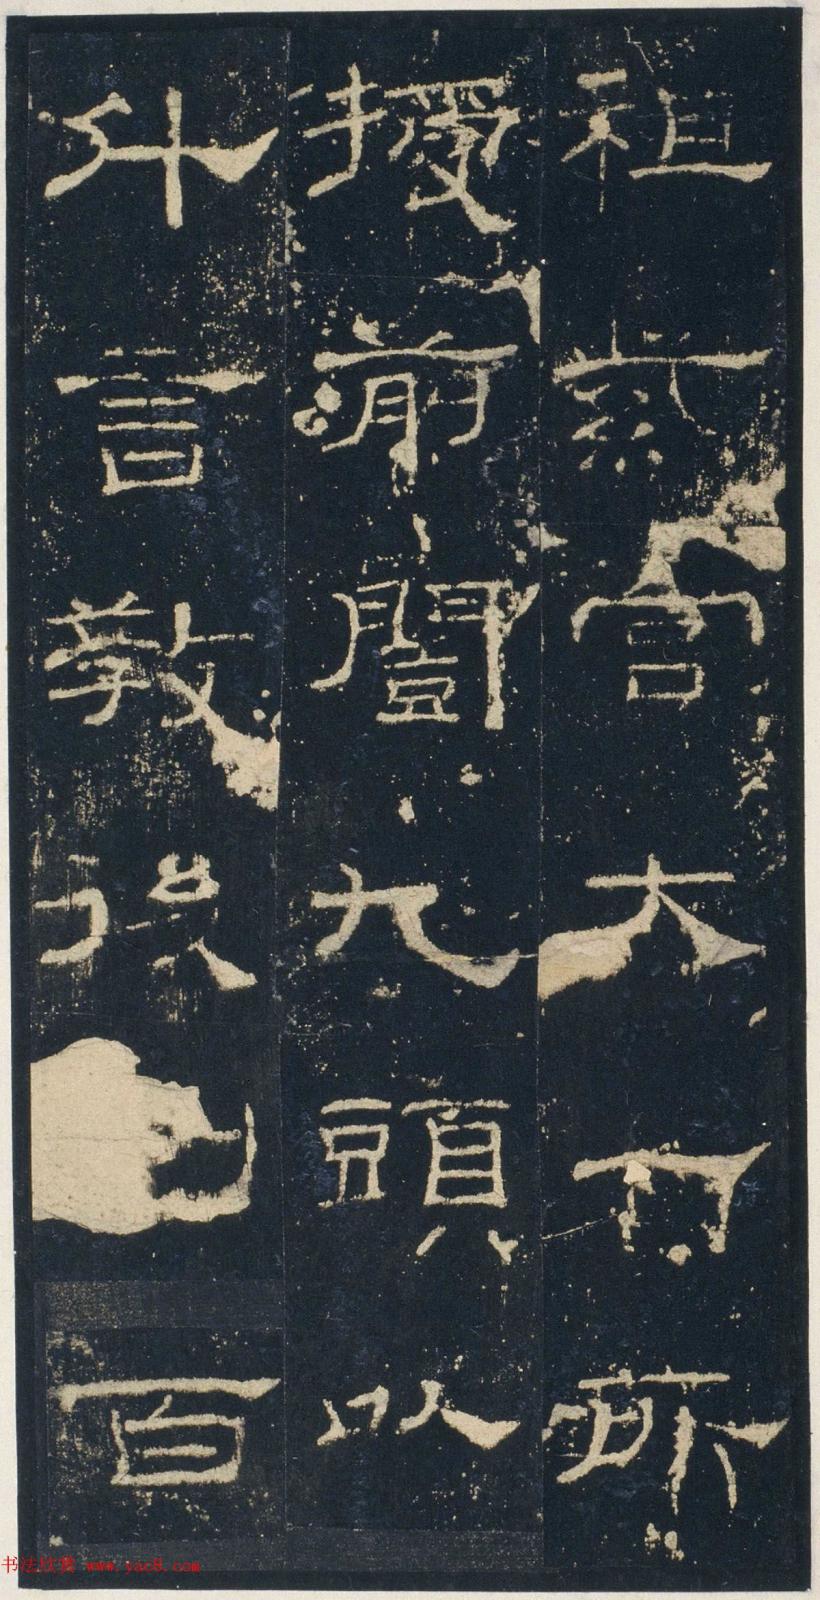 祖紫宮大一所
授前闓九頭以
什言教後百
书法欣赏 www.yac8.com